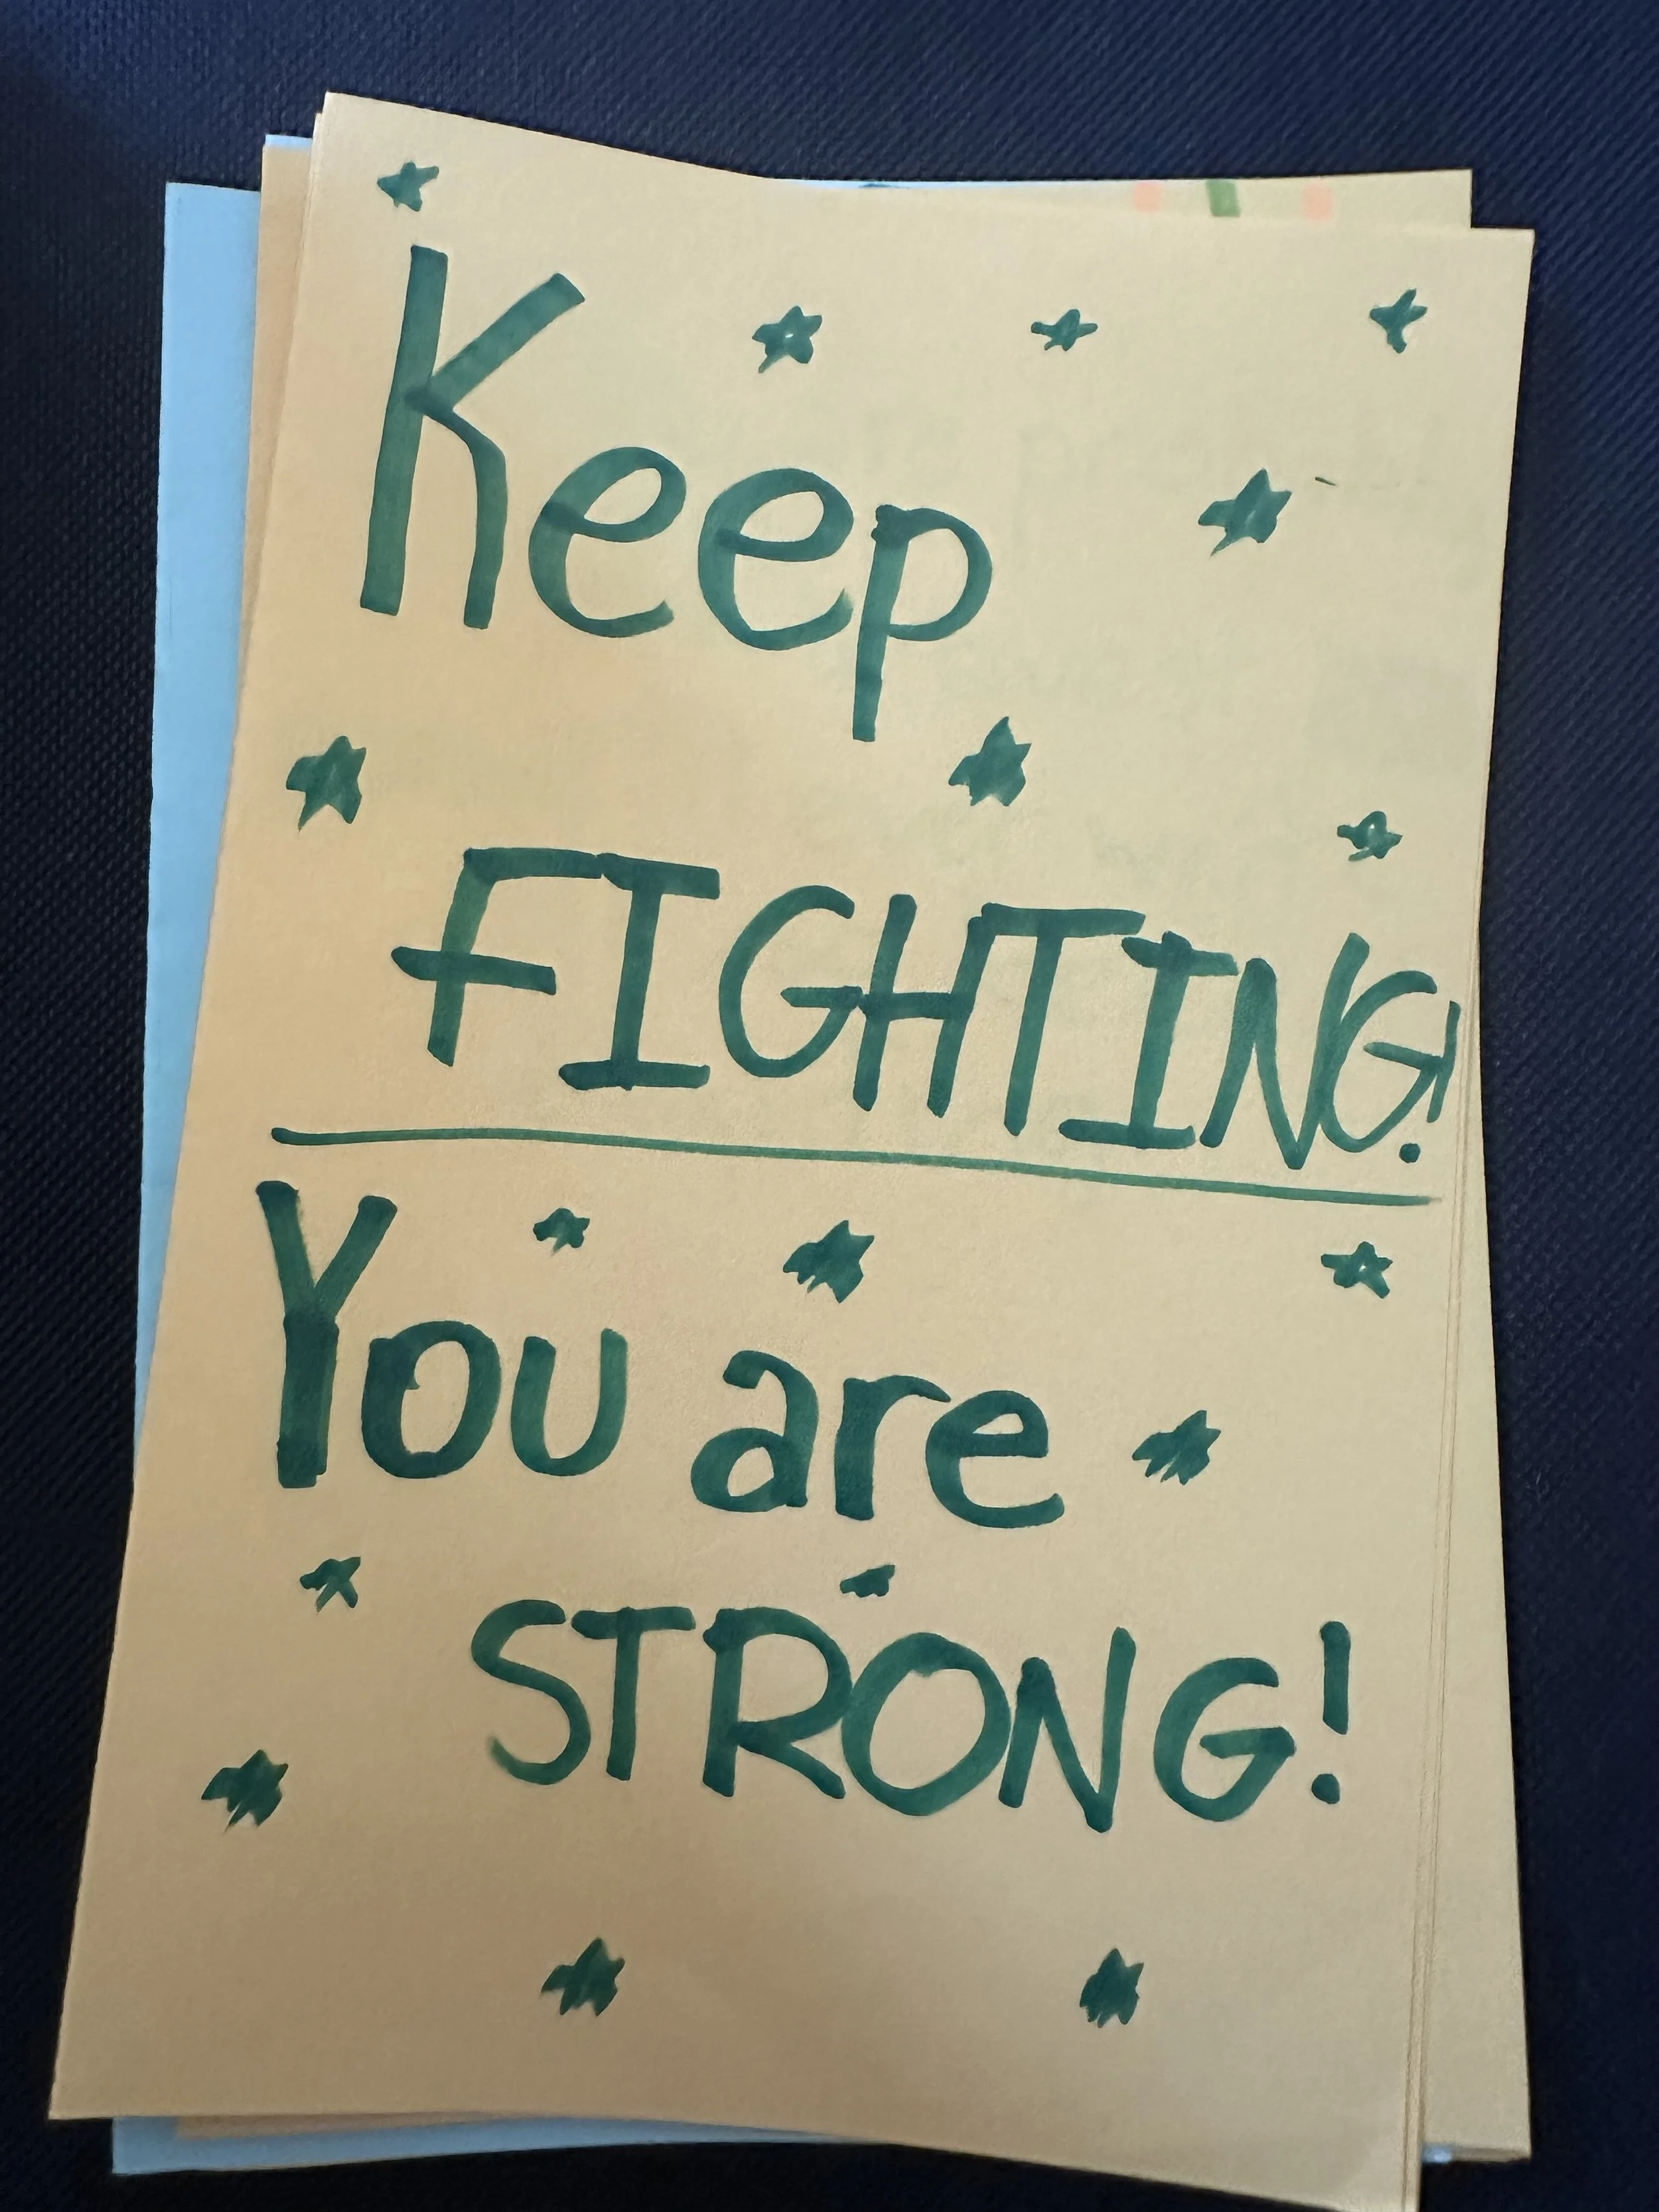 Keep
FIGHTING!
You are
STRONG!